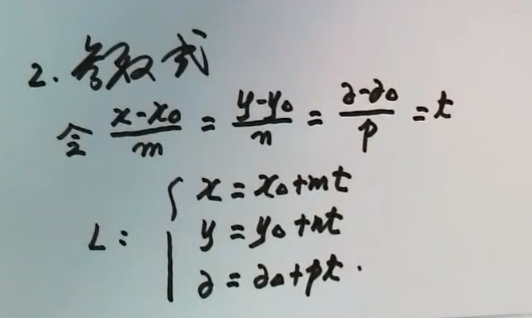 2. 参数式
令 (x-x₀)/m = (y-y₀)/n = (z-z₀)/p = t
L: { x = x₀+mt
y = y₀+nt
z = z₀+pt.